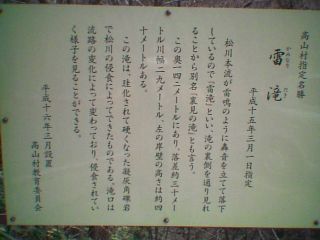 高山村指定名勝
かみなり だき
雷滝
平成十五年三月一日指定
松川本流が雷鳴のように轟音を立てて落下
しているので「雷滝」といい、滝の裏側を通り見れ
ることから別名「裏見の滝」とも言う。
この奥一四二メートルにあり、落差約三十メー
トル川幅二九メートル、左の岸壁の高さは約四
十メートルある。
この滝は、珪化されて硬くなった凝灰角礫岩
で松川の侵食によってできたものである。滝口は
流路の変化によって変わっており、侵食されてい
く様子を見ることができる。
平成十六年三月設置
高山村教育委員会